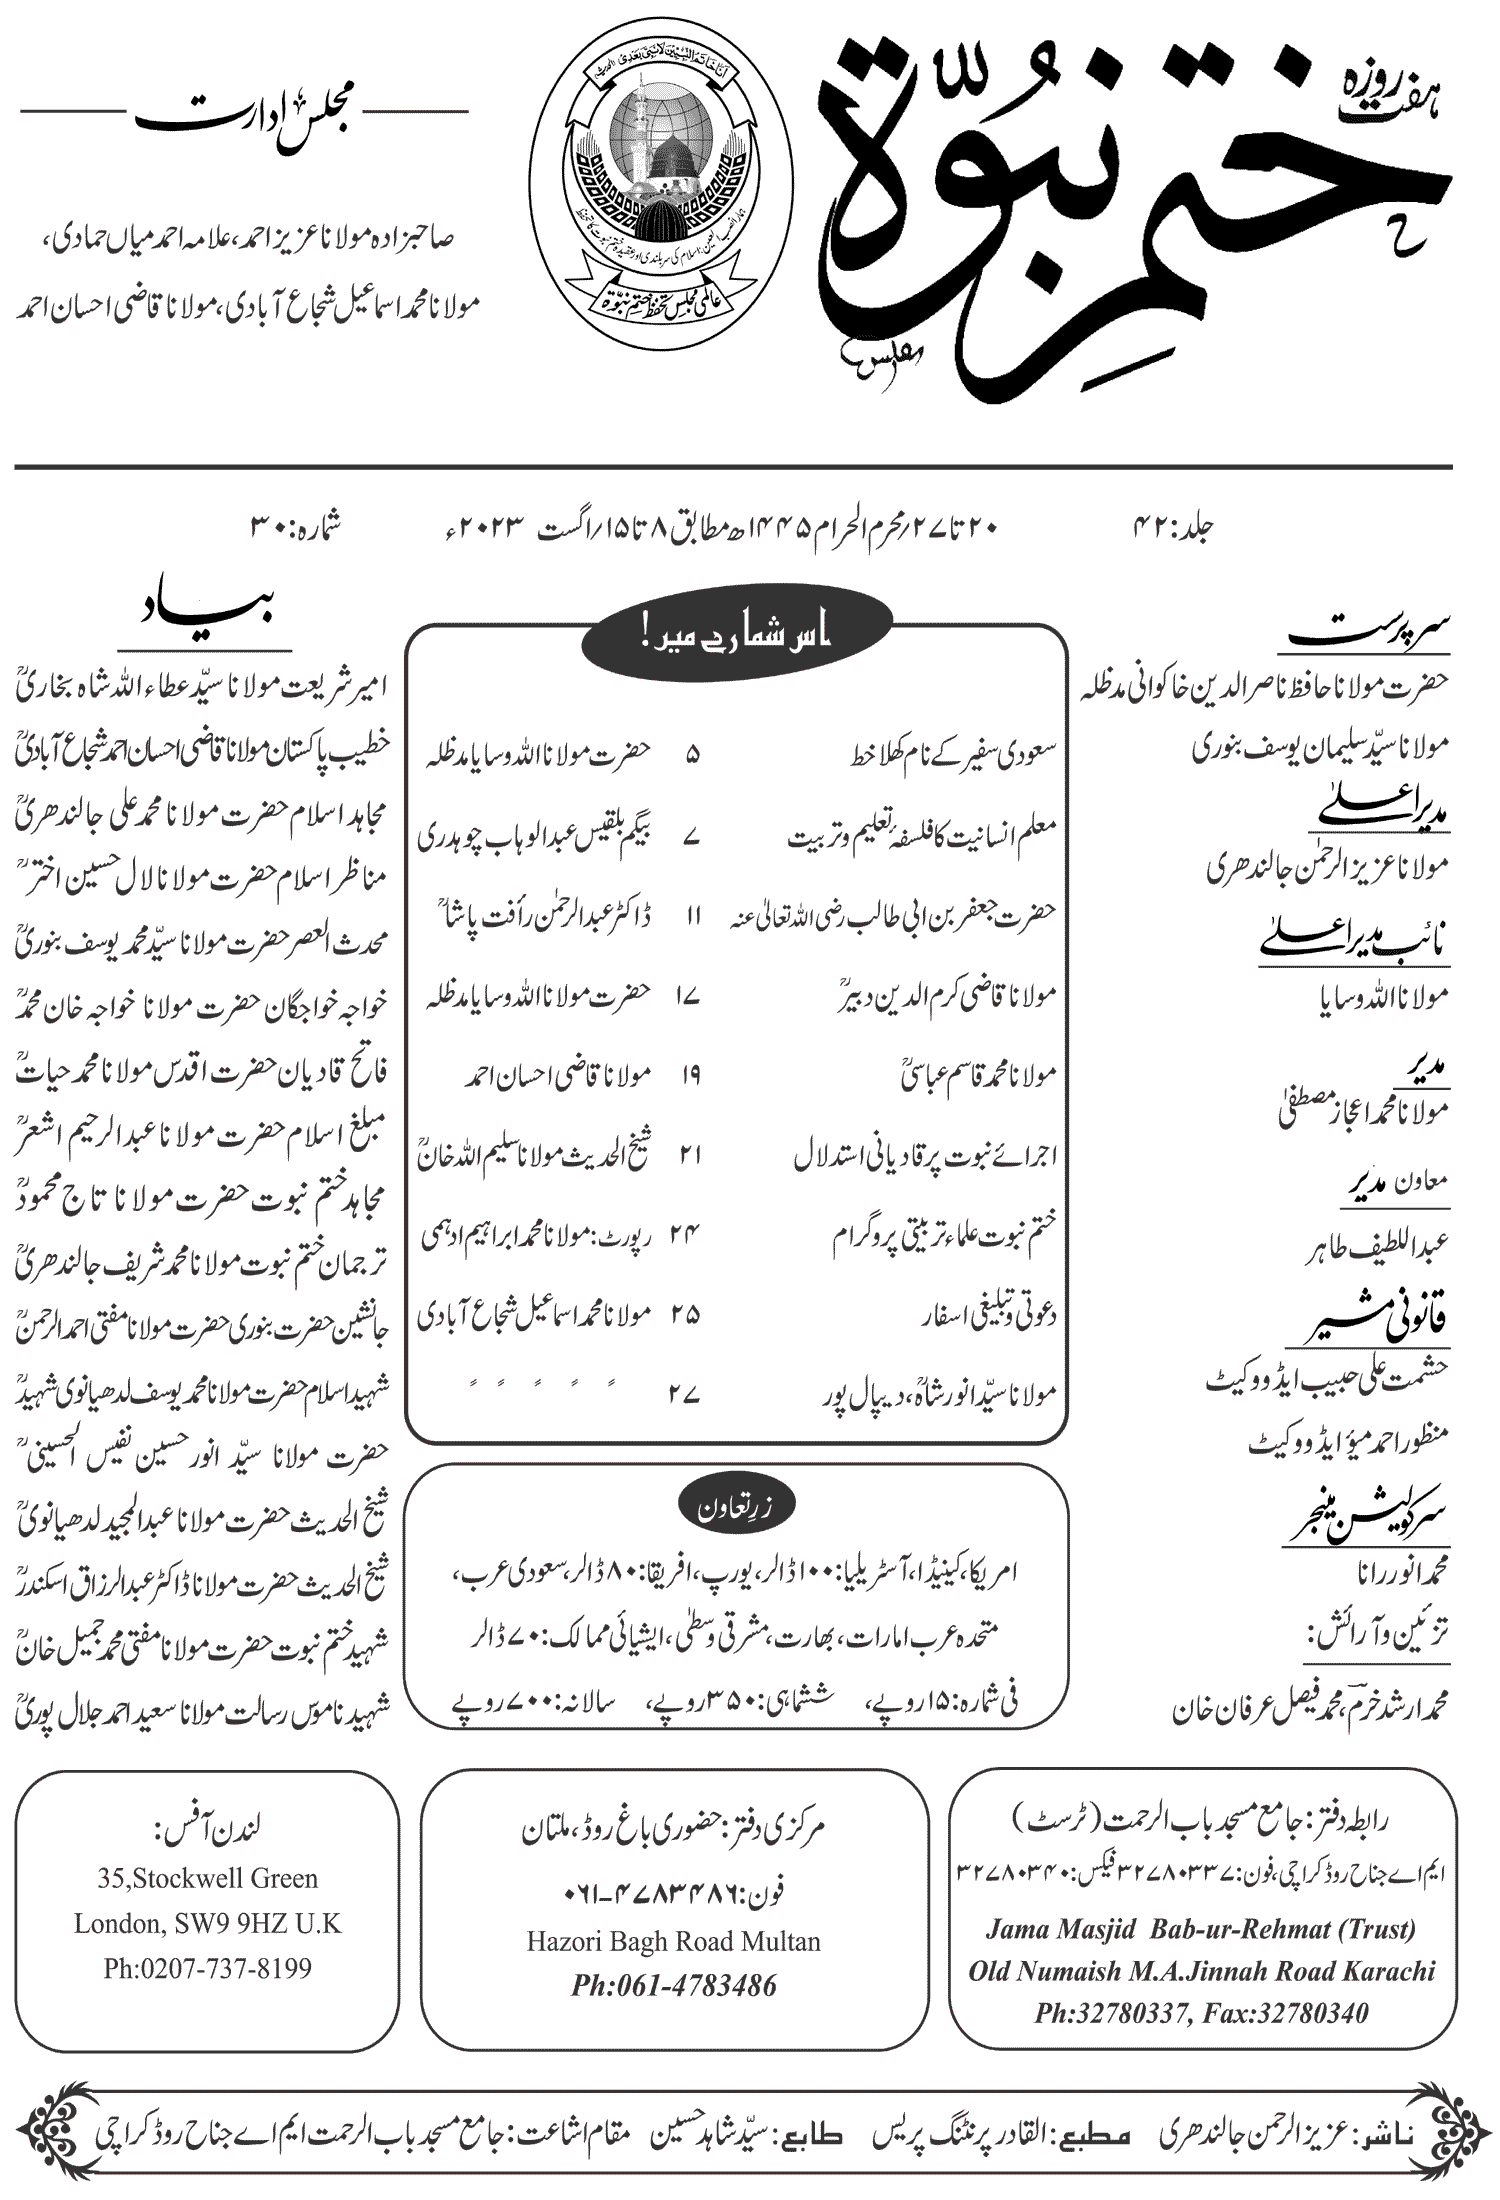 ہفت روزہ
ختم نبوۃ
مجلس
انا خاتم النبیین لا نبی بعدی
عالمی مجلس تحفظ ختم نبوۃ
مجلس ادارت
صاحبزادہ مولانا عزیز احمد، علامہ احمد میاں حمادی،
مولانا محمد اسماعیل شجاع آبادی، مولانا قاضی احسان احمد
جلد: ۴۲ ۲۰ تا ۲۷/محرم الحرام ۱۴۴۵ھ مطابق ۸ تا ۱۵/اگست ۲۰۲۳ء شمارہ: ۳۰
سرپرست
حضرت مولانا حافظ ناصر الدین خاکوانی مدظلہ
مولانا سیّد سلیمان یوسف بنوری
مدیر اعلیٰ
مولانا عزیز الرحمٰن جالندھری
نائب مدیر اعلیٰ
مولانا اللہ وسایا
مدیر
مولانا محمد اعجاز مصطفیٰ
معاون مدیر
عبداللطیف طاہر
قانونی مشیر
حشمت علی حبیب ایڈووکیٹ
منظور احمد میؤ ایڈووکیٹ
سرکولیشن مینجر
محمد انور رانا
تزئین و آرائش:
محمد ارشد خرم، محمد فیصل عرفان خان
اس شمارے میں!
سعودی سفیر کے نام کھلا خط ۵ حضرت مولانا اللہ وسایا مدظلہ
معلم انسانیت کا فلسفۂ تعلیم و تربیت ۷ بیگم بلقیس عبدالوہاب چوہدری
حضرت جعفر بن ابی طالب رضی اللہ تعالیٰ عنہ ۱۱ ڈاکٹر عبدالرحمٰن رأفت پاشاؒ
مولانا قاضی کرم الدین دبیرؒ ۱۷ حضرت مولانا اللہ وسایا مدظلہ
مولانا محمد قاسم عباسیؒ ۱۹ مولانا قاضی احسان احمد
اجرائے نبوت پر قادیانی استدلال ۲۱ شیخ الحدیث مولانا سلیم اللہ خانؒ
ختم نبوت علماء تربیتی پروگرام ۲۴ رپورٹ: مولانا محمد ابراہیم ادہمی
دعوتی و تبلیغی اسفار ۲۵ مولانا محمد اسماعیل شجاع آبادی
مولانا سیّد انور شاہؒ، دیپال پور ۲۷ ‏〃 〃 〃 〃 〃
زرِتعاون
امریکا، کینیڈا، آسٹریلیا: ۱۰۰ ڈالر، یورپ، افریقا: ۸۰ ڈالر، سعودی عرب،
متحدہ عرب امارات، بھارت، مشرقی وسطیٰ، ایشیائی ممالک: ۷۰ ڈالر
فی شمارہ: ۱۵ روپے، ششماہی: ۳۵۰ روپے، سالانہ: ۷۰۰ روپے
بیاد
امیر شریعت مولانا سیّد عطاء اللہ شاہ بخاریؒ
خطیب پاکستان مولانا قاضی احسان احمد شجاع آبادیؒ
مجاہد اسلام حضرت مولانا محمد علی جالندھریؒ
مناظر اسلام حضرت مولانا لال حسین اخترؒ
محدث العصر حضرت مولانا سیّد محمد یوسف بنوریؒ
خواجہ خواجگان حضرت مولانا خواجہ خان محمدؒ
فاتح قادیان حضرت اقدس مولانا محمد حیاتؒ
مبلغ اسلام حضرت مولانا عبدالرحیم اشعرؒ
مجاہد ختم نبوت حضرت مولانا تاج محمودؒ
ترجمان ختم نبوت مولانا محمد شریف جالندھریؒ
جانشین حضرت بنوری حضرت مولانا مفتی احمد الرحمنؒ
شہید اسلام حضرت مولانا محمد یوسف لدھیانوی شہیدؒ
حضرت مولانا سیّد انور حسین نفیس الحسینیؒ
شیخ الحدیث حضرت مولانا عبدالمجید لدھیانویؒ
شیخ الحدیث حضرت مولانا ڈاکٹر عبدالرزاق اسکندرؒ
شہید ختم نبوت حضرت مولانا مفتی محمد جمیل خانؒ
شہید ناموس رسالت مولانا سعید احمد جلال پوریؒ
رابطہ دفتر: جامع مسجد باب الرحمت (ٹرسٹ)
ایم اے جناح روڈ کراچی، فون: ۳۲۷۸۰۳۳۷ فیکس: ۳۲۷۸۰۳۴۰
Jama Masjid Bab-ur-Rehmat (Trust)
Old Numaish M.A.Jinnah Road Karachi
Ph:32780337, Fax:32780340
مرکزی دفتر: حضوری باغ روڈ، ملتان
فون: ۰۶۱-۴۷۸۳۴۸۶
Hazori Bagh Road Multan
Ph:061-4783486
لندن آفس:
35,Stockwell Green
London, SW9 9HZ U.K
Ph:0207-737-8199
ناشر: عزیز الرحمن جالندھری مطبع: القادر پرنٹنگ پریس طابع: سیّد شاہد حسین مقام اشاعت: جامع مسجد باب الرحمت ایم اے جناح روڈ کراچی